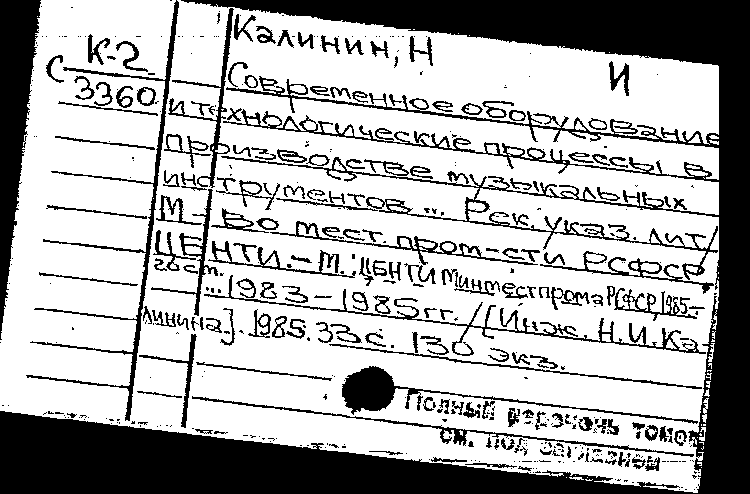 Калинин, Н
И
К-2
С 3360
Современное оборудование
и технологические процессы в
производстве музыкальных
инструментов ... Рек. указ. лит/
М-во мест. пром-сти РСФСР,
ЦБНТИ. – М.: ЦБНТИ Минместпрома РСФСР, 1985.–
...1983–1985гг. / [Инж. Н.И.Ка-
линина]. 1985. 33с. 130 экз.
Полный перечень томов
см. под заглавием